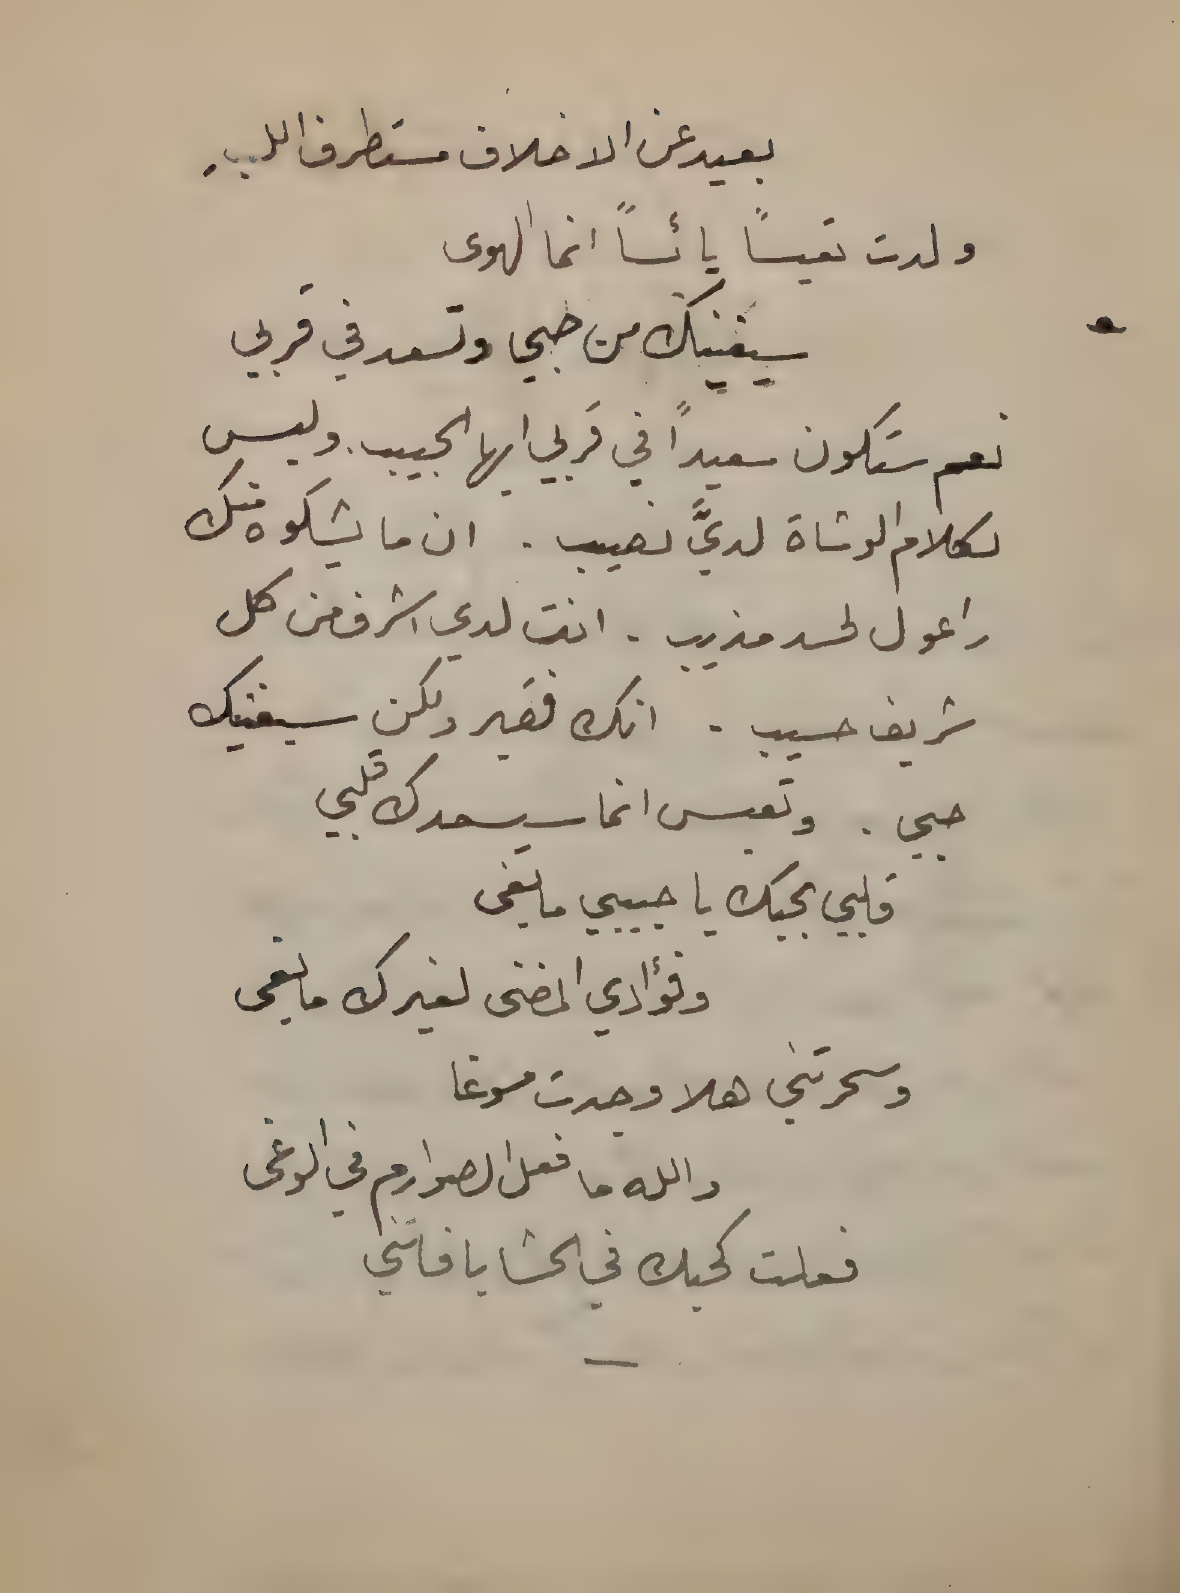 بعيد عن الاخلاف مستطرف اللب.
ولدت تعيساً يائساً انما الهوى
سيغنيك من حبي وتسعد في قربي
نعم ستكون سعيداً في قربي ايها الحبيب. وليس
لكلام الوشاة لديَّ نصيب . ان ما يشكوه منك
راعول لحسد مذيب . انت لدي اشرف من كل
شريف حسيب . انك فقير ولكن سيغنيك
حبي . وتعيس انما سيسعدك قلبي
قلبي بحبك يا حبيبي ما لغى
وفؤادي المضنى لغيرك ما بغى
وسحرتني هلا وجدت مسوغا
والله ما فعل الصوارم في الوغى
فعلت كحبك في الحشا يا فاتني